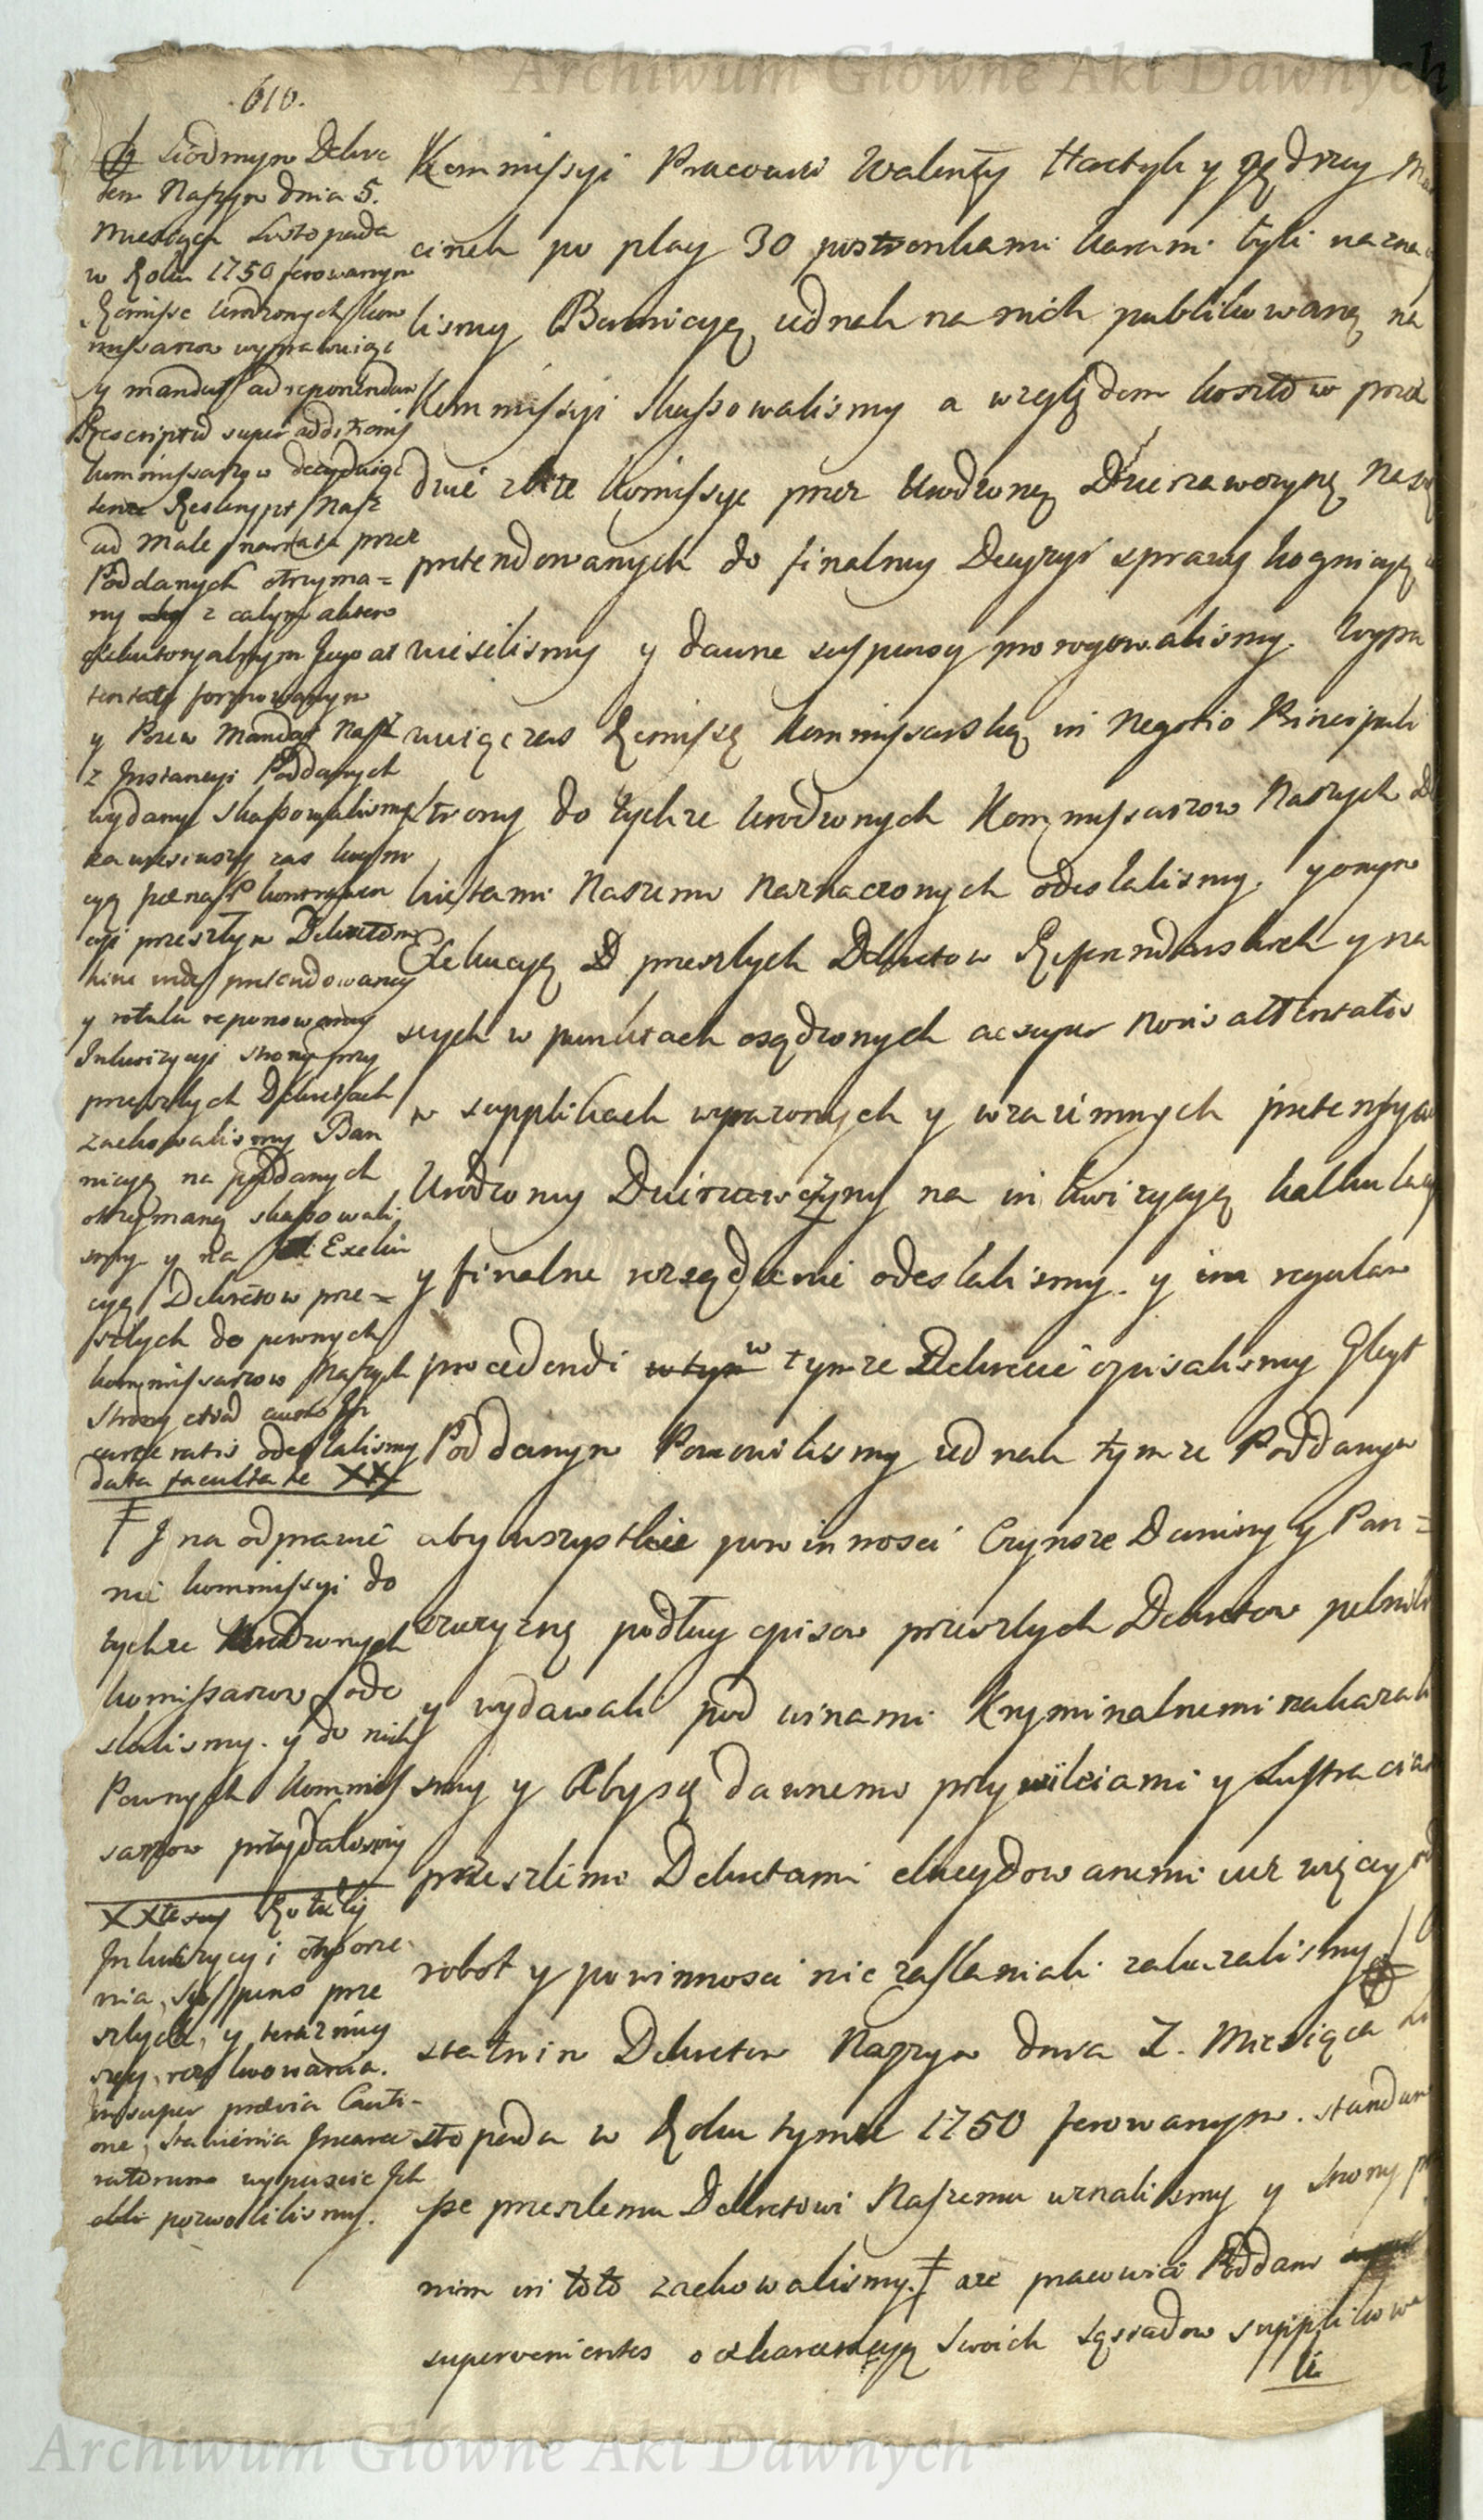 Archiwum Główne Akt Dawnych
610.
Siodmym Dekre
tem Naszym dnia 5.
Miesiąca Listopada
w Roku 1750 ferowanym
Remissę Urodzonych kom
missarzow wyprawuiąc
y mandat ad reponendum
Rescriptu super additionis
kommissarzow decyduiąc
tenze Reskrypt Nasz
ad male narrata przez
Poddanych otrzyma=
ny z całym aktem
exekutoryalnym Jego at
tentate formowanym
y Pozew Mandat Nasz
z Instancyi Poddanych
wydany skassowalismy
cyi przeszłym Dekretom
hinc inde pretendowaney
y rotulu reponowaney
Inkwizycyi strony przy
przeszłych Dekretach
zachowalismy Ban
nicyą na poddanych
otrzymaną skassowali
smy y na Exeku
cyą Dekretow prze=
szłych do pewnych
kommissarzow Naszych
strony odesłalismy
data facultate XX
‡ I na odprawie
nie kommissyi do
tychze Urodzonych
komissarzow ode
slalismy. y do nich
Pewnych kommis
sarzow przydalismy
XX Rotuły
Inkwizycyi otworze
nia, suspens prze
szłych, y terazniey
szey rezolwowania.
insuper prævia Cauti-
one, stawienia Incarce
ratorum wypuscic Ich
pozwolilismy.
Kommissyi Pracowici Walenty Hactyk y Jędrzey Mar
cinek po plag 30 postronkami karani byli naznaczy
lismy Bannicyą iednak na nich publikowaną na
Kommissyi skassowalismy a względem kosztow przed
dwie zbite komissye przez Urodzoną Dzierzawczynę Naszę
pretendowanych do finalney Decyzyi sprawy kognicyą
wiesilismy y dawne suspensy prorogowalismy. Wypra
wuiąc zas Remissę kommissarską in Negotio Principali
strony do tychze Urodzonych Kommissarzow Naszych De
kretami Naszemi naznaczonych odesłalismy, y onym
Exekucyą przeszłych Dekretow Referendarskich y na
szych w punktach osądzonych ac super novis attentatis
w supplikach wyrazonych y wzaiemnych pretensyach
Urodzoney Dzierzawczyny na inkwizycyą kalkulacyą
y finalne rozsądzenie odeslalismy. y im regulam
procedendi w tymze Dekrecie opisalismy Gleyt
Poddanym Ponowilismy iednak tymze Poddanym
aby wszystkie powinnosci Czynsze Daniny y Pan=
szczyznę podług opisow przeszłych Dekretow pelnili
y wydawali pod winami Kryminalnemi nakazali
smy y Aby się dawnemi przywileiami y Lustraciami
przeszlimi Dekretami elucydowanemi iuz więcey od
robot y powinnosci nie zaslaniali zakazalismy
statnim Dekretem Naszym dnia 7. Miesiąca Li
stopada w Roku tymze 1750 ferowanym. standum
sse przeszlemu Dekretowi Naszemu uznalismy y strony przy
nim in toto zachowalismy. ‡ aze pracowici Poddani
supervenientes o inkarceracyą swoich Sąsiadow supplikowa
li
Archiwum Główne Akt Dawnych